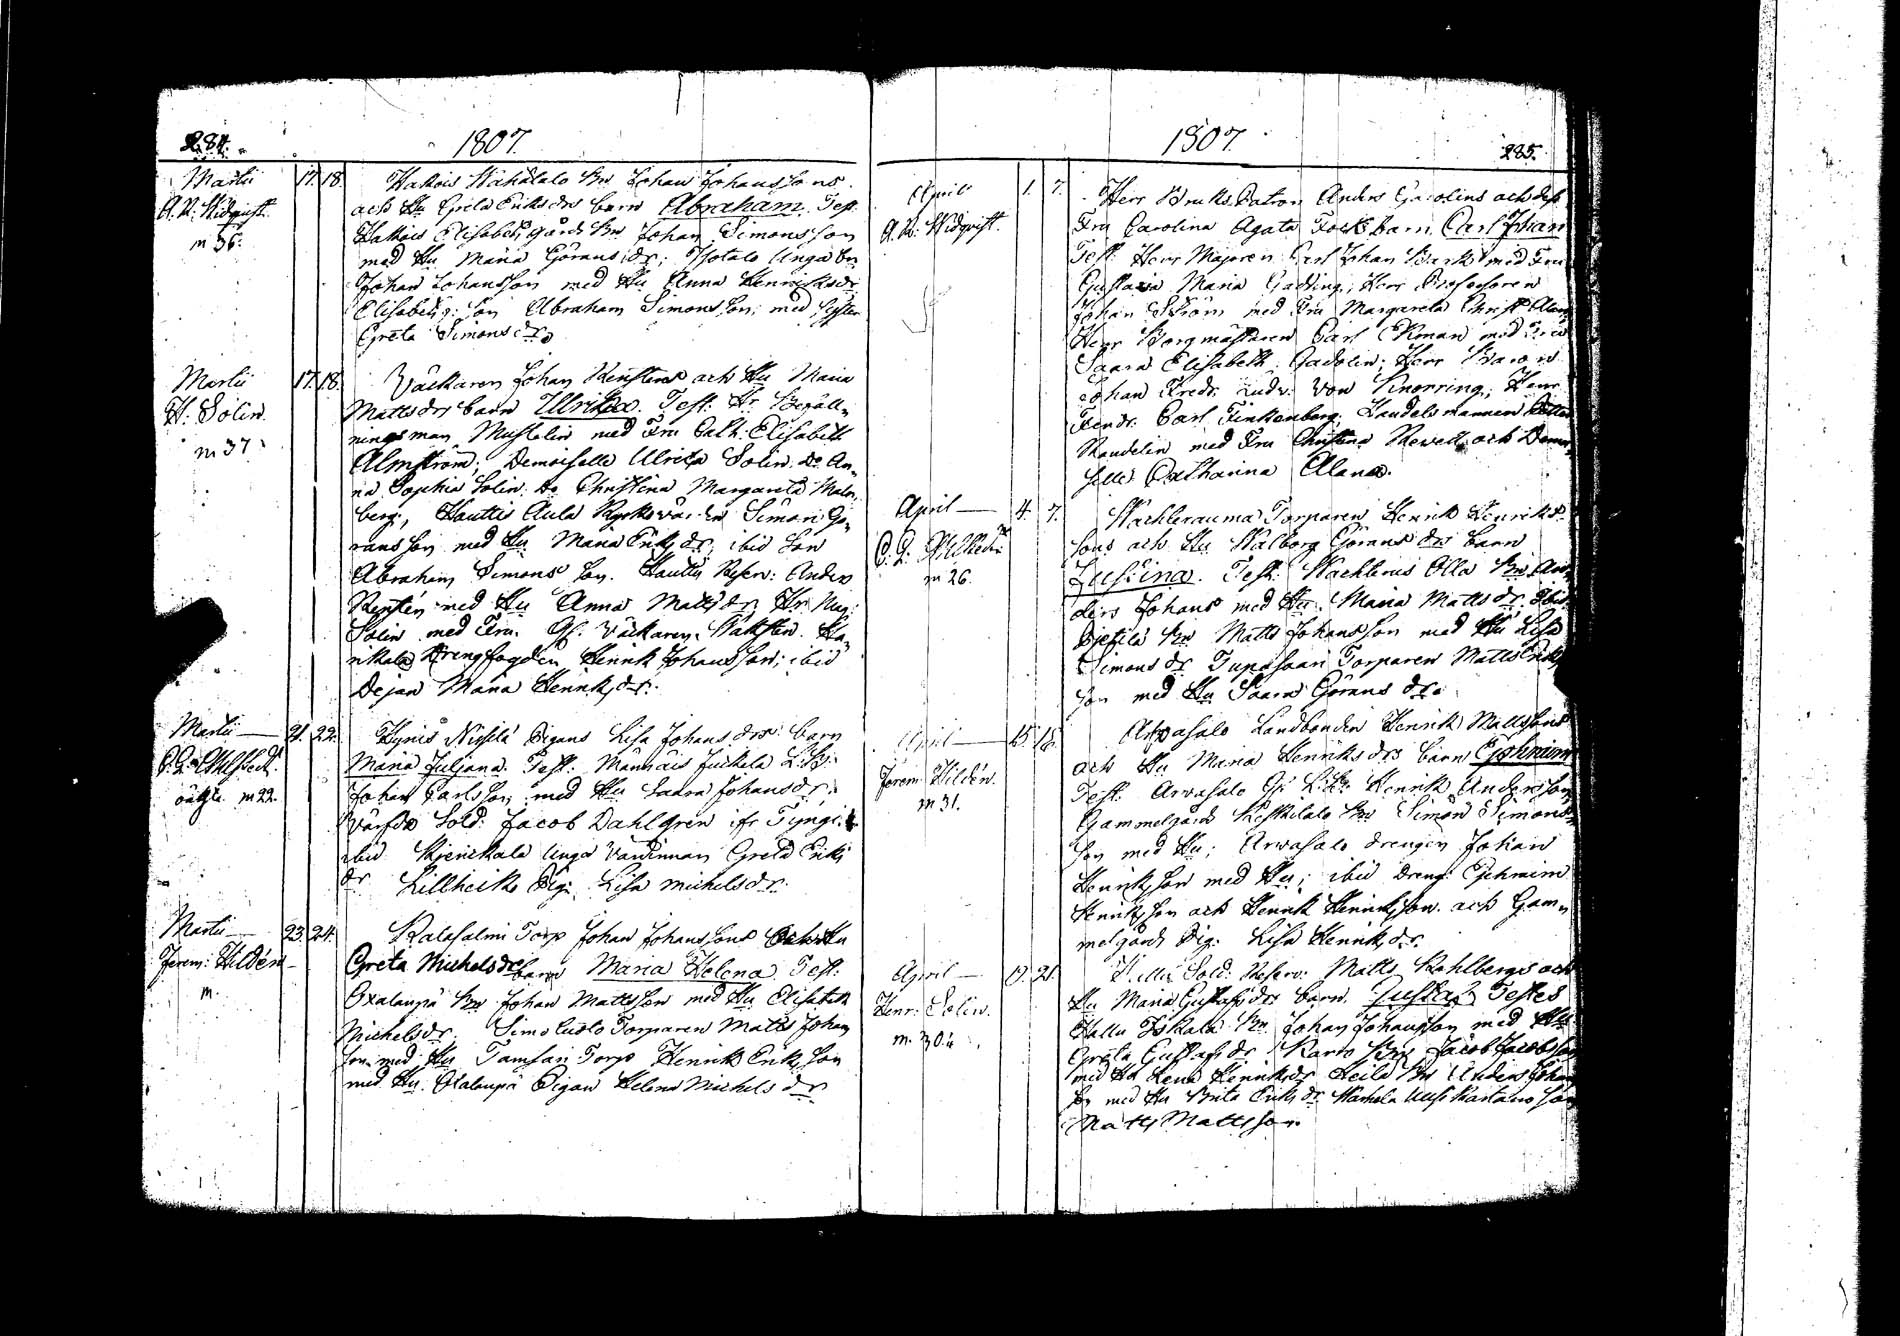 284.
1807.
Martii 17. 18.
A. N. Widqvist.
m 36.
Hakois Wähätalo Bn Johan Johanssons
ach Hu Greta Eriksdrs barn Abraham. Test.
Hakois Elisabets gårds Bn Johan Simonsson
med Hu Maria Göransdr; Isotalo unga bn
Johan Johansson med Hu Anna Henriksdr
Elisabets g: son Abraham Simonsson, med syster
Greta Simonsdr.
Martii 17. 18.
H. Solin.
m 37.
Väckaren Johan ach Hu Maria
Mattsdrs barn Ulrika. Test: Hr Befall-
ningsman Mustelin med Fru Cath: Elisabeth
Almström; Demoiselle Ulrica Solin. Do An-
na Sophia Solin. Do Christina Margareta Malm-
berg, Hauttis Aula Simon Gö-
ransson med Hu Maria Eriksdr; ibid Son
Abraham Simons son. Hauttis Reserv: Anders
med Hu Anna Mattsdr, Hr
Solin med Fru. Gl. Väckaren Ha-
rikala Drengfogden Henrik Johansson; ibid
Dejan Maria Henriksdr.
Martii 21. 22.
C. G. Ahlstedt.
oägta. m 22.
Hynis Nissilä Pigans Lisa Johansdrs barn
Maria Juliana. Test: Männäis Juckela
Johan Carlsson med Hu Saara Johansdr,
Sold: Jacob Dahlgren
ibid unga Värdinnan Greta Eriks
dr Lillheike Pig: Lisa Michelsdr.
Martii 23. 24.
Jerem: Hildén
m.
Kalasalmi Torp Johan Johanssons och Hu
Greta Michelsdrs barn Maria Helena. Test:
Oxalanpä Bn Johan Mattsson med Hu Elisabeth
Michelsdr. Torparen Matts Johan
son med Hu Tamsari Torp Henrik Eriksson
med Hu. Oxalanpä Pigan Helena Michelsdr
1807.
285.
April 1. 7.
A. N. Widqvist.
Herr Bruks Patron Anders Gadolins ach dess
Fru Carolina Agata Focks barn Carl Johan
Test: Herr Majoren Carl Johan med Fru
Gustava Maria Gadding, Herr Professoren
Johan Ström med Fru Margareta Christ: Alan,
Herr Borgmästaren Carl Ekman med Fru
Saara Elisabeth Gadolin; Herr Baron
Johan Fredr. Ludv: von Knorring, Herr
Fendr. Carl Finkenberg; Handelsmannen
Randelin med Fru Christina ach Demoi-
selle Catharina Alana.
April 4. 7.
m 26.
Wachterauma Torparen Henrik Henriks-
sons ach Hu Walborg Göransdrs barn
Justina. Test: Wachterus Olla Bn An-
ders Johans med Hu Maria Mattsdr; ibid
Pietilä Bn Matts Johansson med Hu Lisa
Simonsdr Tupasaari Torparen Matts Eriks
son med Hu Saara Göransdr.
April 15. 18.
Jerem: Hildén.
m 31.
Arvasalo Landbonden Henrik Mattssons
ach Hu Maria Henriksdrs barn Ephraim
Test: Arvasalo Henrik Andersson
Gammelgårds Keskitalo Bn Simon Simons-
son med Hu; Arvasalo drengen Johan
Henriksson med Hu; ibid Dreng: Ephraim
Henriksson ach Henrik Henriksson. ach Gam-
melgårds Pig: Lisa Henriksdr.
April 19. 21.
Henr: Solin.
m. 30.
Sold: Reserv: Matts Kahlbergs ach
Hu Maria Gustafsdrs barn. Gustaf. Testes
Hallu Iskala Bn Johan Johansson med Hu
Greta Gustafsdr Karvo Bn Jacob Jacobsson
med Hu Lena Henriksdr Heila Bn Anders Johan
son med Hu Brita Eriksdr
Matts Mattsson.